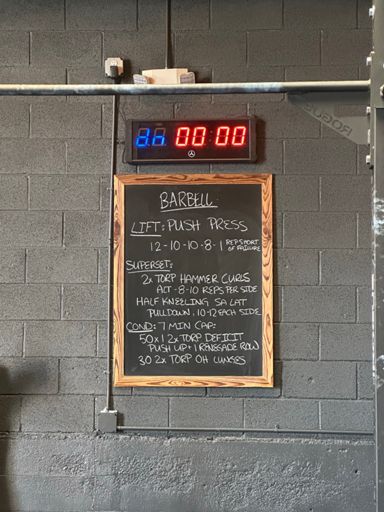 dn 00:00
ROGUE
BARBELL
LIFT: PUSH PRESS
12-10-10-8-1 REPS PORT OF FAILURE
SUPERSET:
2x TORP HAMMER CURLS
ALT - 8-10 REPS PER SIDE
HALF KNEELING SA LAT
PULLDOWN, 10-12 EACH SIDE
COND: 7 MIN CAP:
50x1 2x TORP DEFICIT
PUSH UP + 1 RENEGADE ROW
30 2x TORP OH LUNGES